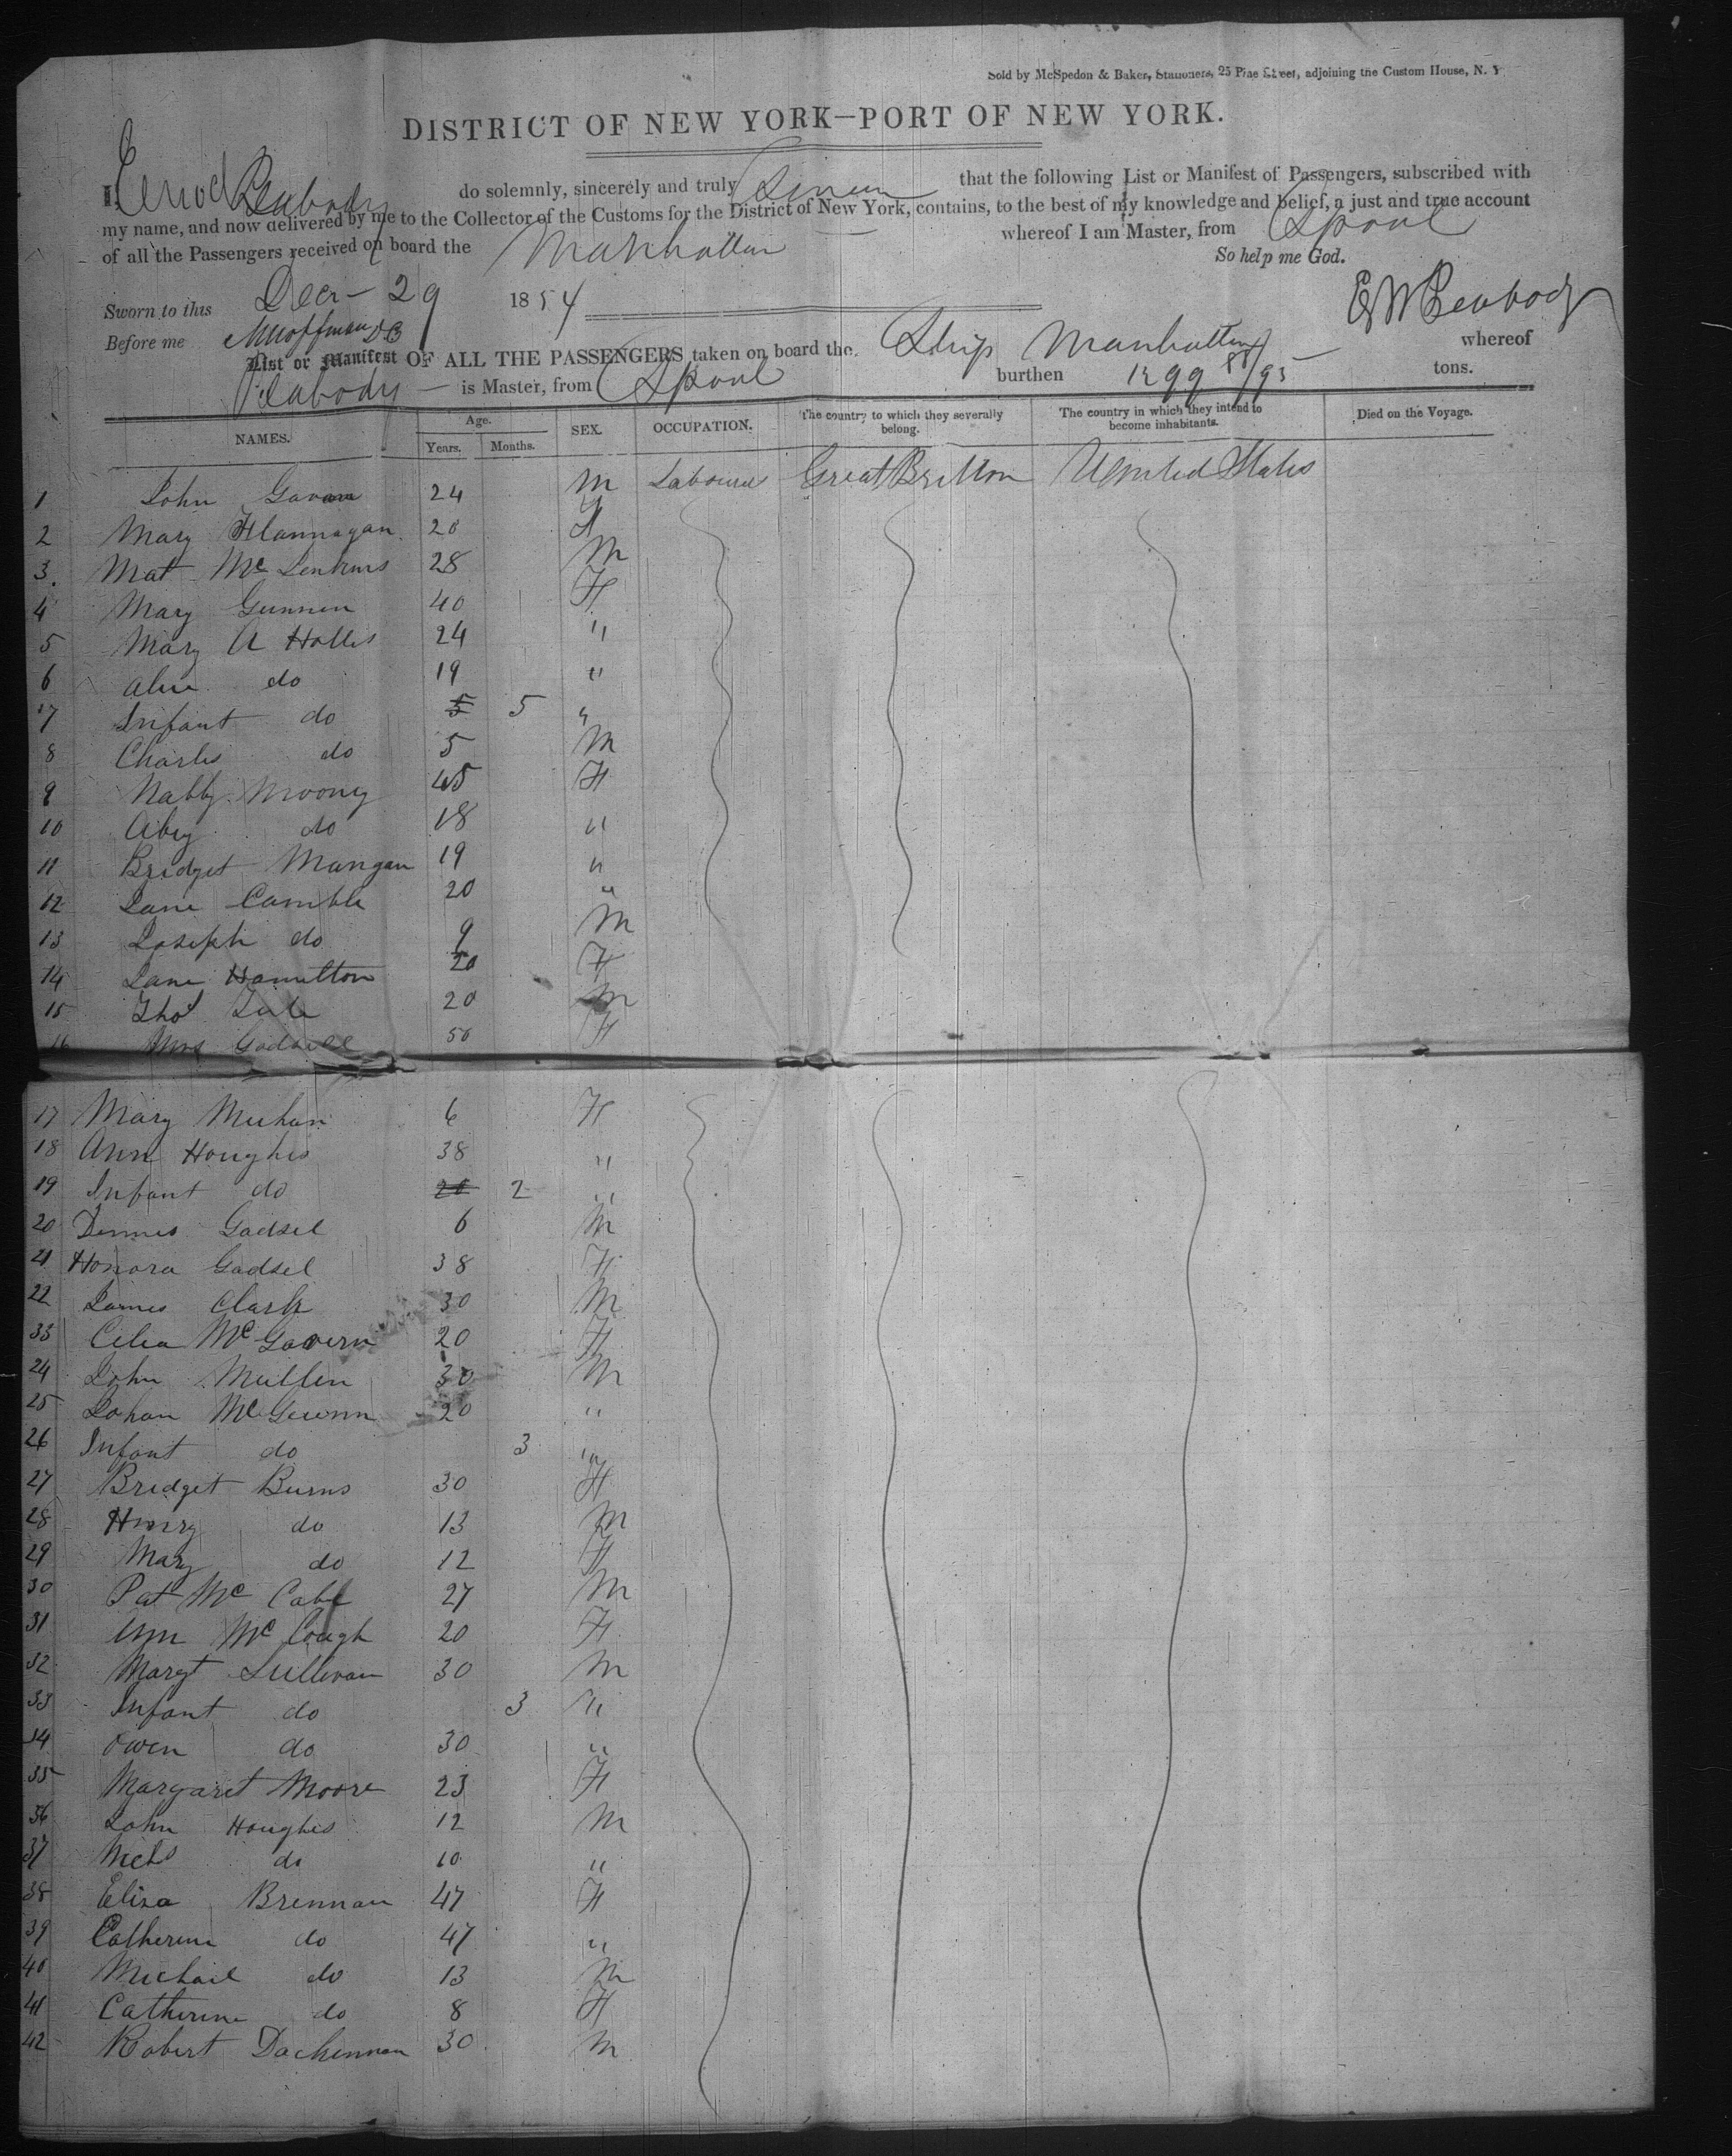 Sold by McSpedon & Baker, Stationers, 25 Pine Street, adjoining the Custom House, N. Y
DISTRICT OF NEW YORK—PORT OF NEW YORK.
I, Peabody do solemnly, sincerely and truly that the following List or Manifest of Passengers, subscribed with
my name, and now delivered by me to the Collector of the Customs for the District of New York, contains, to the best of my knowledge and belief, a just and true account
of all the Passengers received on board the Manhattan whereof I am Master, from Lpool
So help me God.
Sworn to this Decr - 29 1854
E W Peabody
Before me
List or Manifest OF ALL THE PASSENGERS taken on board the Ship Manhattan whereof
Peabody is Master, from Lpool burthen 1299 /95 tons.
NAMES. Age. Years. Months. SEX. OCCUPATION. The country to which they severally belong. The country in which they intend to become inhabitants. Died on the Voyage.
1 John Gavan 24 M Labourer Great Britton United States
2 Mary Flannagan 20 F
3. Mat Mc Jenkins 28 M
4 Mary Gunnen 40 F
5 Mary A Holles 24 "
6 Alice do 19 "
7 Infant do 5 5 "
8 Charles do 5 M
9 Nabby Moony 45 F
10 Abey do 18 "
11 Bridget Mangan 19 "
12 Jane Camble 20 "
13 Joseph do 9 M
14 Jane Hamilton 20 F
15 Thos 20 M
16 Mrs 50 F
17 Mary Meehan 6 F
18 Ann Houghes 38 "
19 Infant do 20 2 "
20 Dennis Gadsel 6 M
21 Honora Gadsel 38 F
22 James Clark 30 M
33 Celia McGovern 20 F
24 John Mullen 30 M
25 Johan McGuinn 20 "
26 Infant do 3 "
27 Bridget Burns 30 F
28 Henry do 13 M
29 Mary do 12 F
30 Pat Mc Cabe 27 M
31 Ann Mc Cough 20 F
32 Margt Sullivan 30 M
33 Infant do 3 "
34 Owen do 30 "
35 Margaret Moore 23 F
36 John Houghes 12 M
37 Nichs do 10 "
38 Eliza Brennan 47 F
39 Catherine do 47 "
40 Michail do 13 M
41 Catherine do 8 F
42 Robert Dackennan 30 M